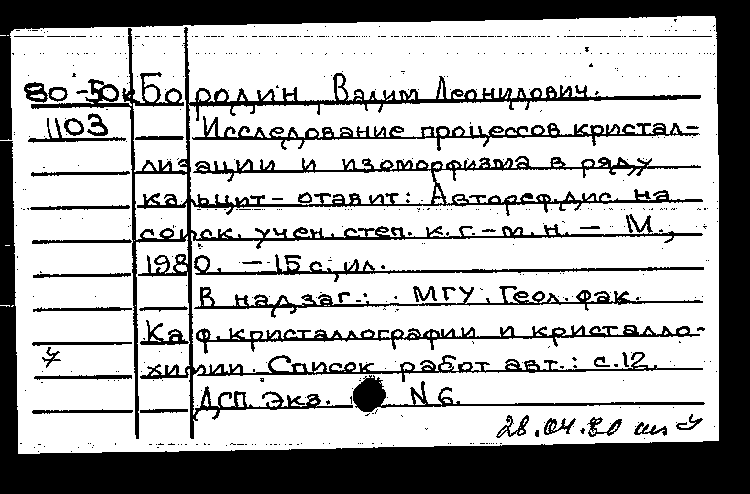 80-50к Бородин, Вадим Леонидович.
1103 Исследование процессов кристал-
лизации и изоморфизма в ряду
кальцит-отавит: Автореф.дис. на
соиск. учен. степ. к. г.-м. н. - М.,
1980. - 15 с., ил.
В надзаг.: МГУ. Геол. фак.
Каф. кристаллографии и кристалло-
химии. Список работ авт.: с.12.
ДСП. Экз. N 6.
28.04.80